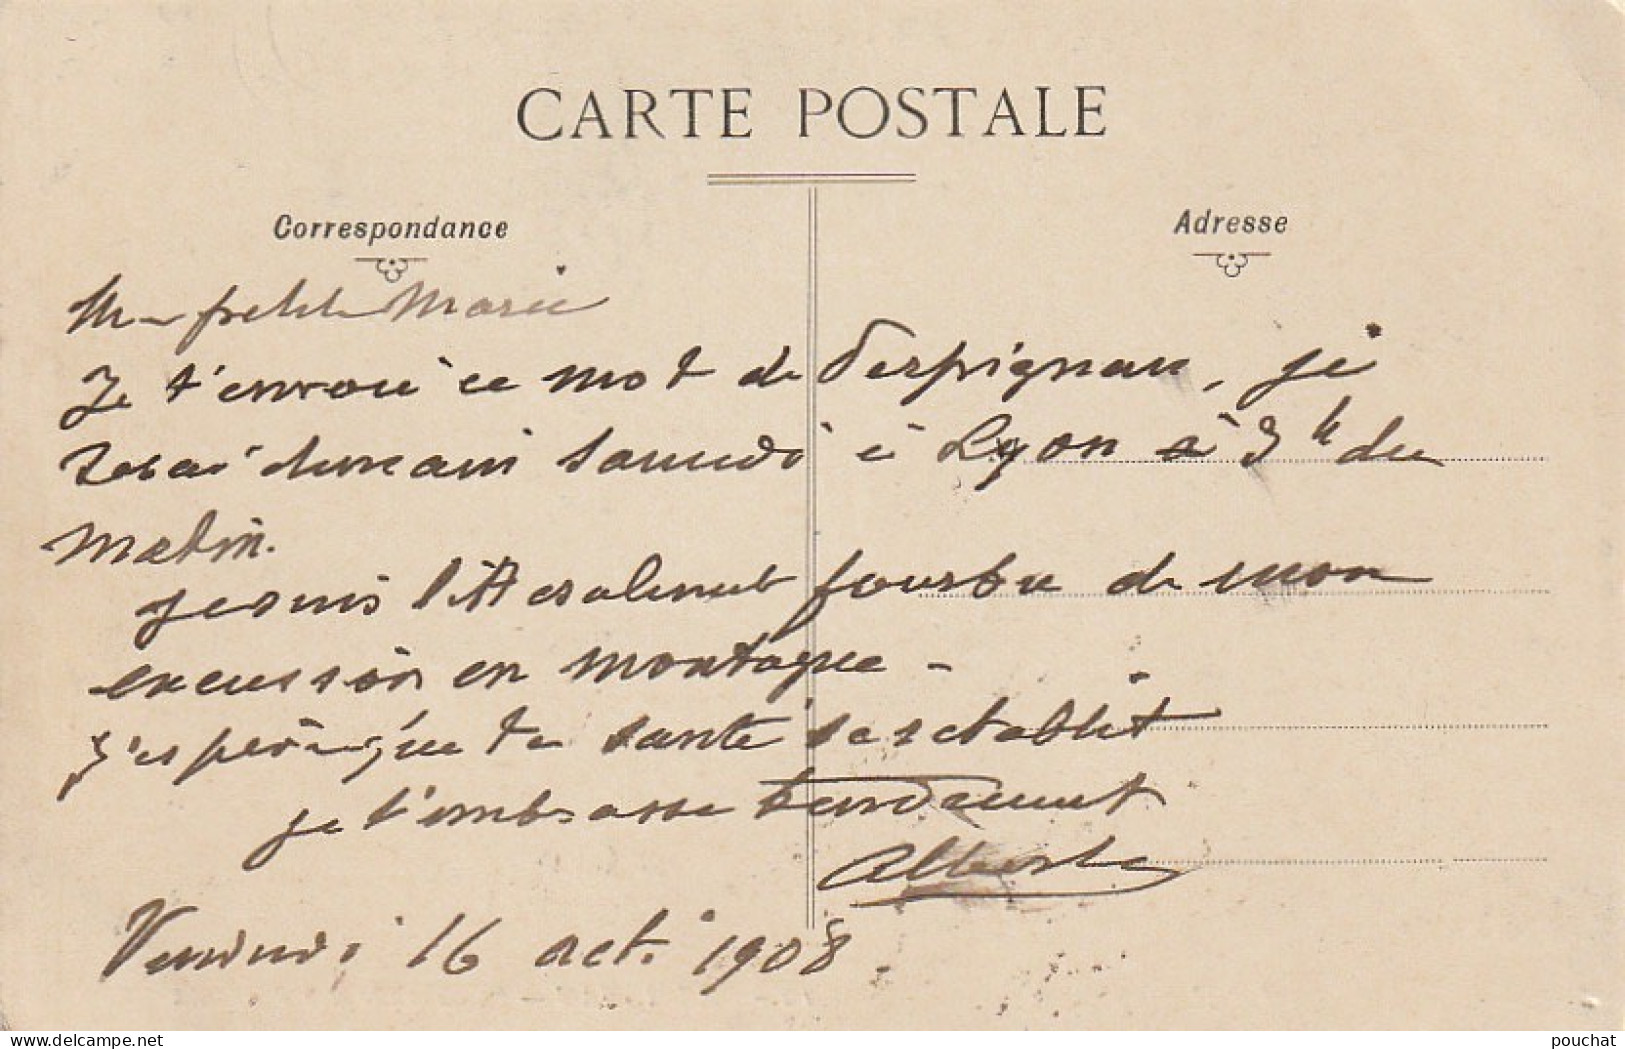 CARTE POSTALE
Correspondance
Adresse
Ma petite Marie
Je t'envoie ce mot de Perpignan, je
serai demain samedi à Lyon à 3h du
matin.
Je suis littéralement fourbu de mon
excussion en montagne -
J'espère que ta santé se rétablit
je t'embrasse tendrement
Albert
Vendredi 16 oct. 1908
www.delcampe.net
pouchat